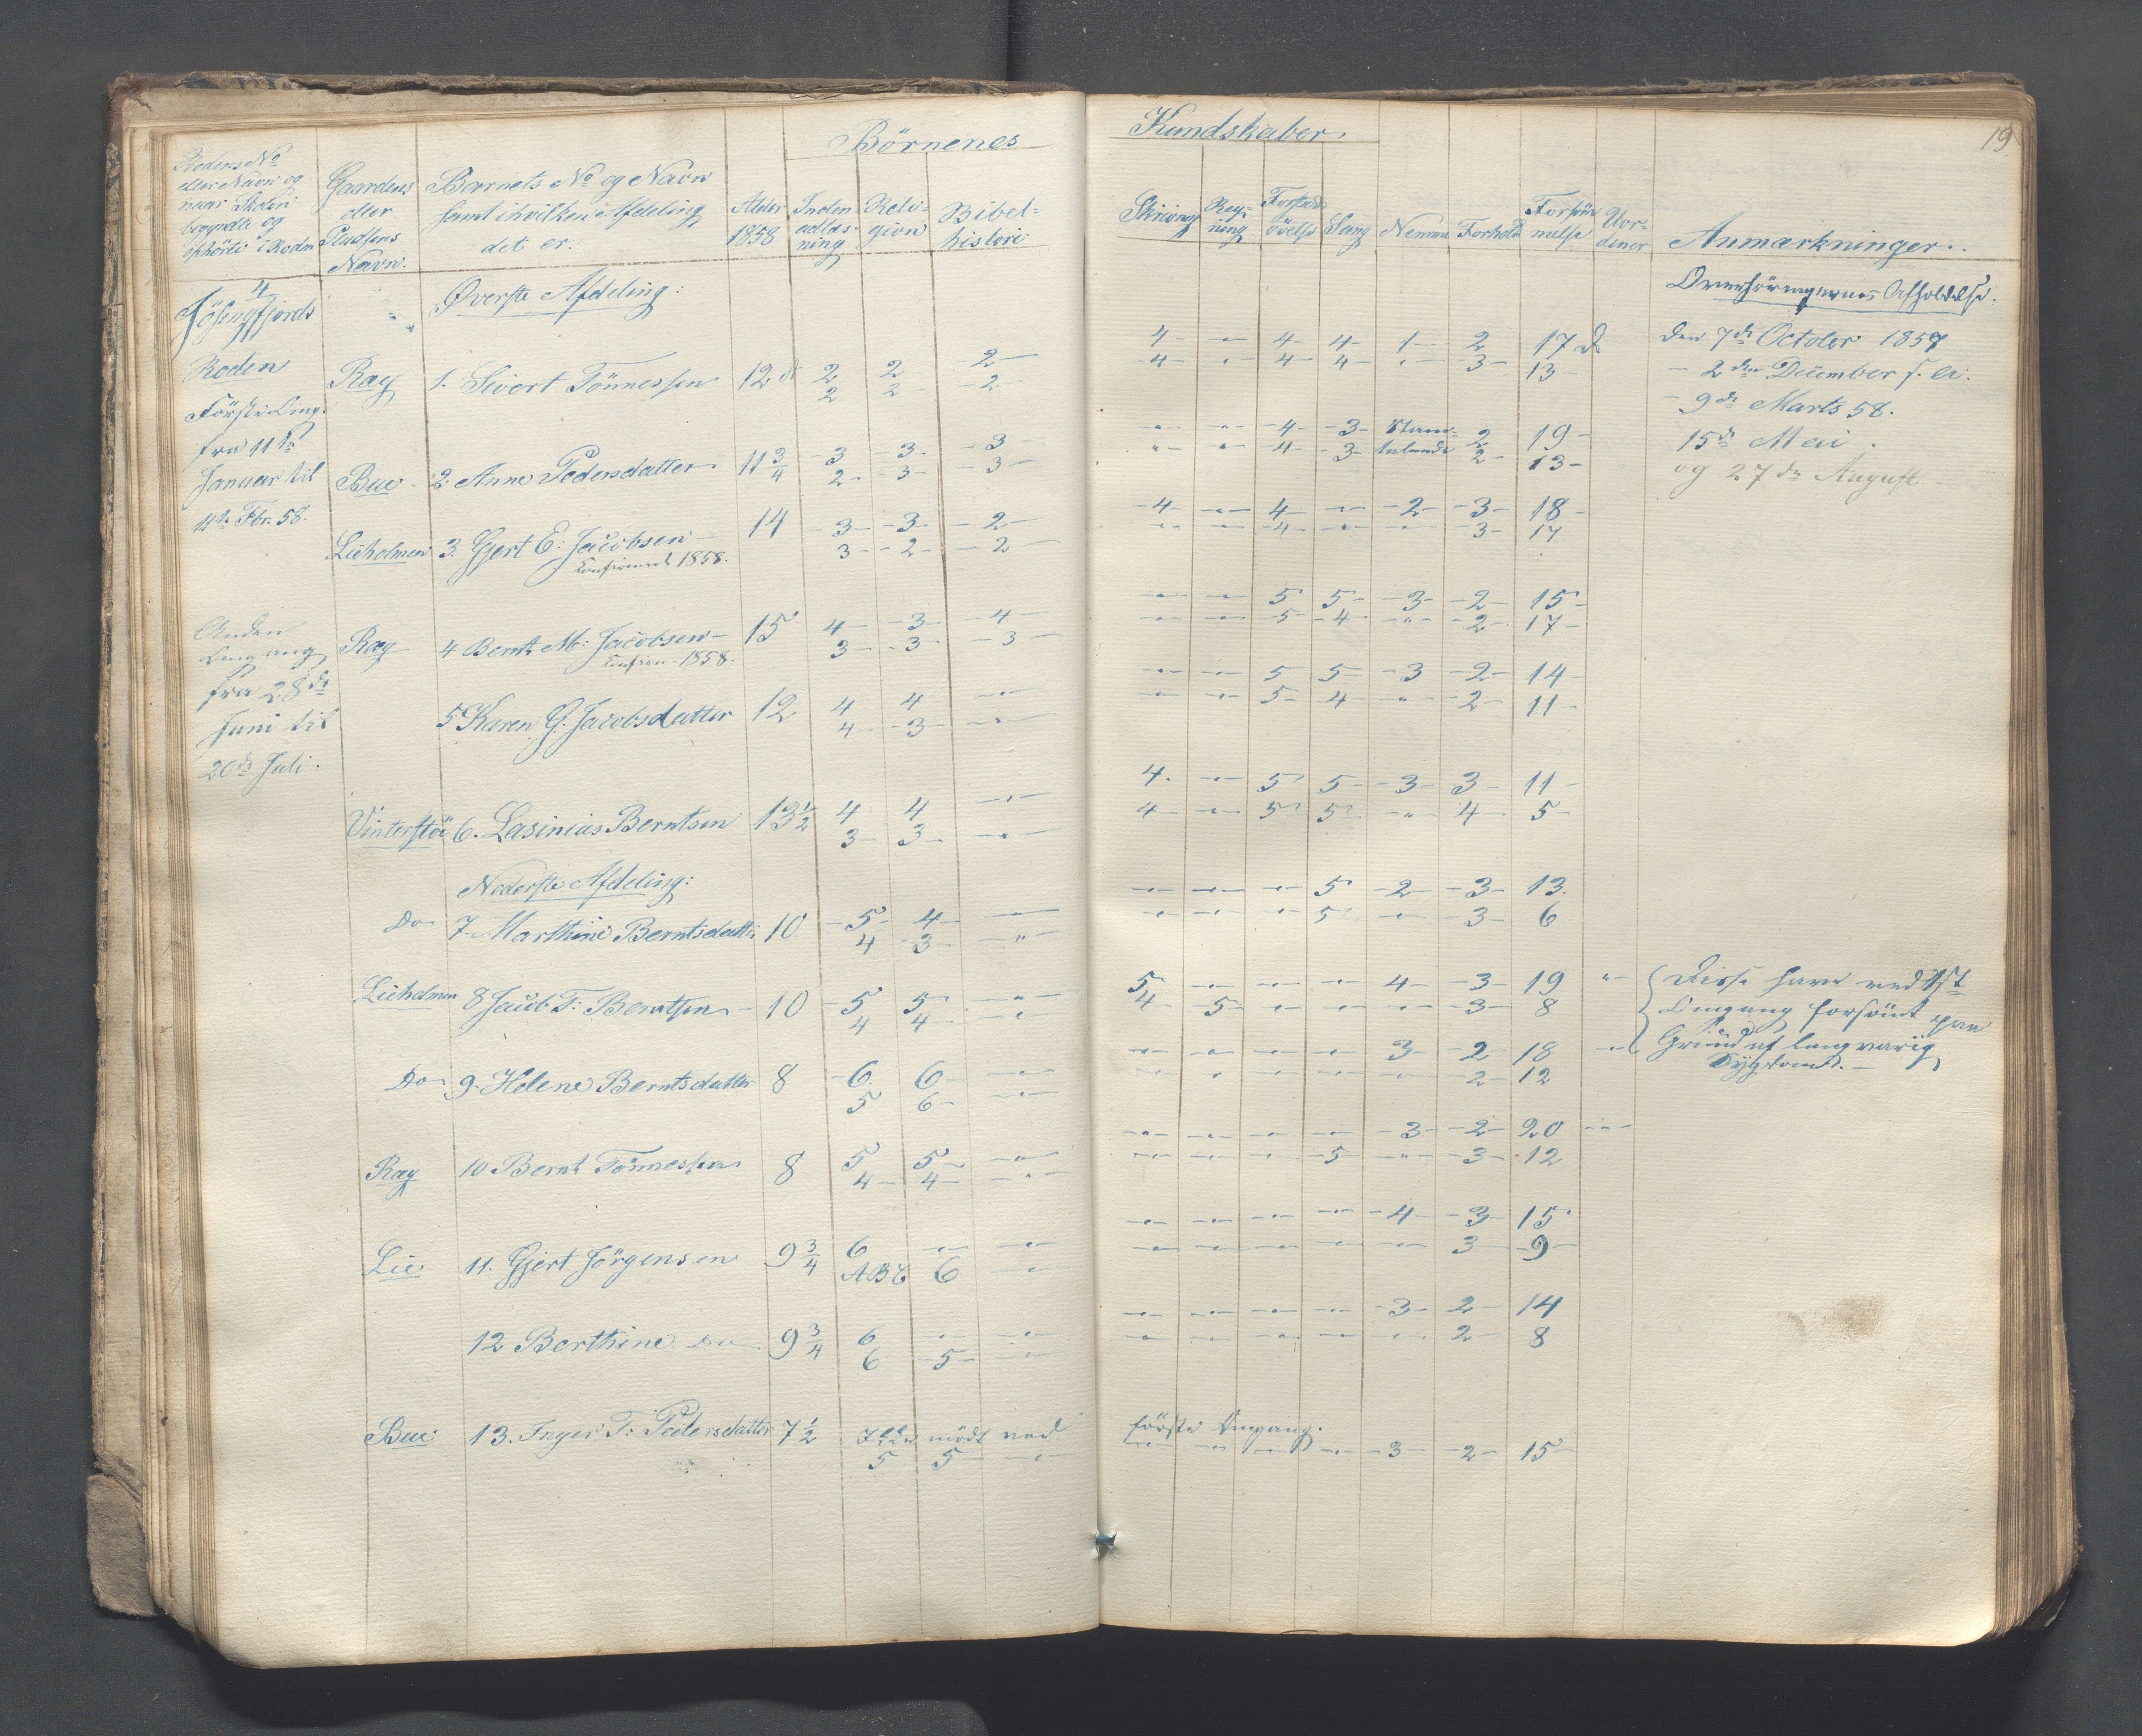 19
Børnenes Kundskaber.
Rodens No
eller Navn og
naar Skolen
begyndte og
ophørte i Roden
Gaardens
eller
Pladsens
Navn.
Barnets No og Navn
samt i hvilken Afdeling
det er.
Alder
1858
Inden-
adlæs-
ning
Reli-
gion
Bibel-
histori
Skrivning
Reg-
ning
Forstands
øvelse
Sang
Nemme
Forhold
Forsøm
melse
Uor-
dener
Anmærkninger.
4
Jøsingfjords
Roden
Første Omg.
fra 11te
Januar til
11te Fbr. 58.
Anden
Omgang
fra 28de
Juni til
20de Juli.
Øverste Afdeling:
Overhøringernes Afholdelse.
Den 7de October 1857
- 2den December s. A.
- 9de Marts 58.
15de Mai.
og 27de August
Ræg 1. Sivert Tønnessen 12 2 2 2 4 - " - 4 4 1 2 17 d
2 2 2 4 " 4 4 " 3 13
Bue 2. Anne Pedersdatter 11 3/4 3 3 3 " " 4 3 Stam- 2 19
2 3 3 " " 4 3 talende 2 13
Lieholmen 3. Gjert E. Jacobsen 14 3 3 2 4 " 4 " 2 3 18
Confirmert 1858. 3 2 2 " " 4 " " 3 17
Ræg 4 Bernt M. Jacobsen 15 4 3 4 " " 5 5 3 2 15
Confirm. 1858. 3 3 3 " " 5 4 " 2 17
5 Karen G. Jacobsdatter 12 4 4 " " " 5 5 3 2 14
4 3 " " " 5 4 " 2 11
Vinterstø 6. Lasinius Berntsen 13 1/2 4 4 " 4 " 5 5 3 3 11
3 3 " 4 " 5 5 " 4 5
Nederste Afdeling:
Do 7. Marthine Berntsdatter 10 5 4 " " " " 5 2 3 13
4 3 " " " " 5 " 3 6
Lieholmen 8 Jacob T. Berntsen 10 5 5 " 5 " " " 4 3 19 "
4 4 " 4 5 " " " 3 8
Do 9. Helene Berntsdatter 8 6 6 " " " " " 3 2 18 "
5 6 " " " " " " 2 12
Disse have ved 1ste
Omgang forsømt paa
Grund af langvarig
Sygdom.
Ræg 10 Bernt Tønnessen 8 5 5 " " " " " 3 2 20 "
4 4 " " " " 5 " 3 12
Lie 11. Gjert Jørgensen 9 3/4 6 " " " " " " 4 3 15
ABC 6 " " " " " " 3 9
12 Berthine Do 9 3/4 6 " " " " " " 3 2 14
6 5 " " " " " " 2 8
Bue 13. Inger T. Pedersdatter 7 1/2 Ikke mødt ved første Omgang.
5 5 " " " " " 3 2 15